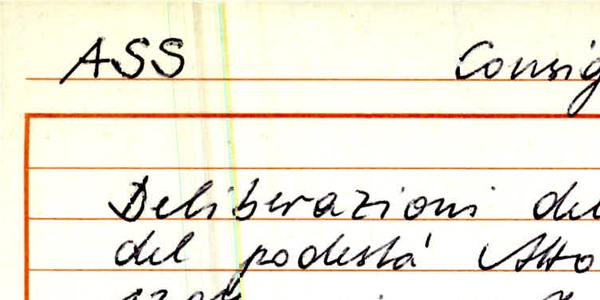 ASS Consig
Deliberazioni del
del podestà Atto